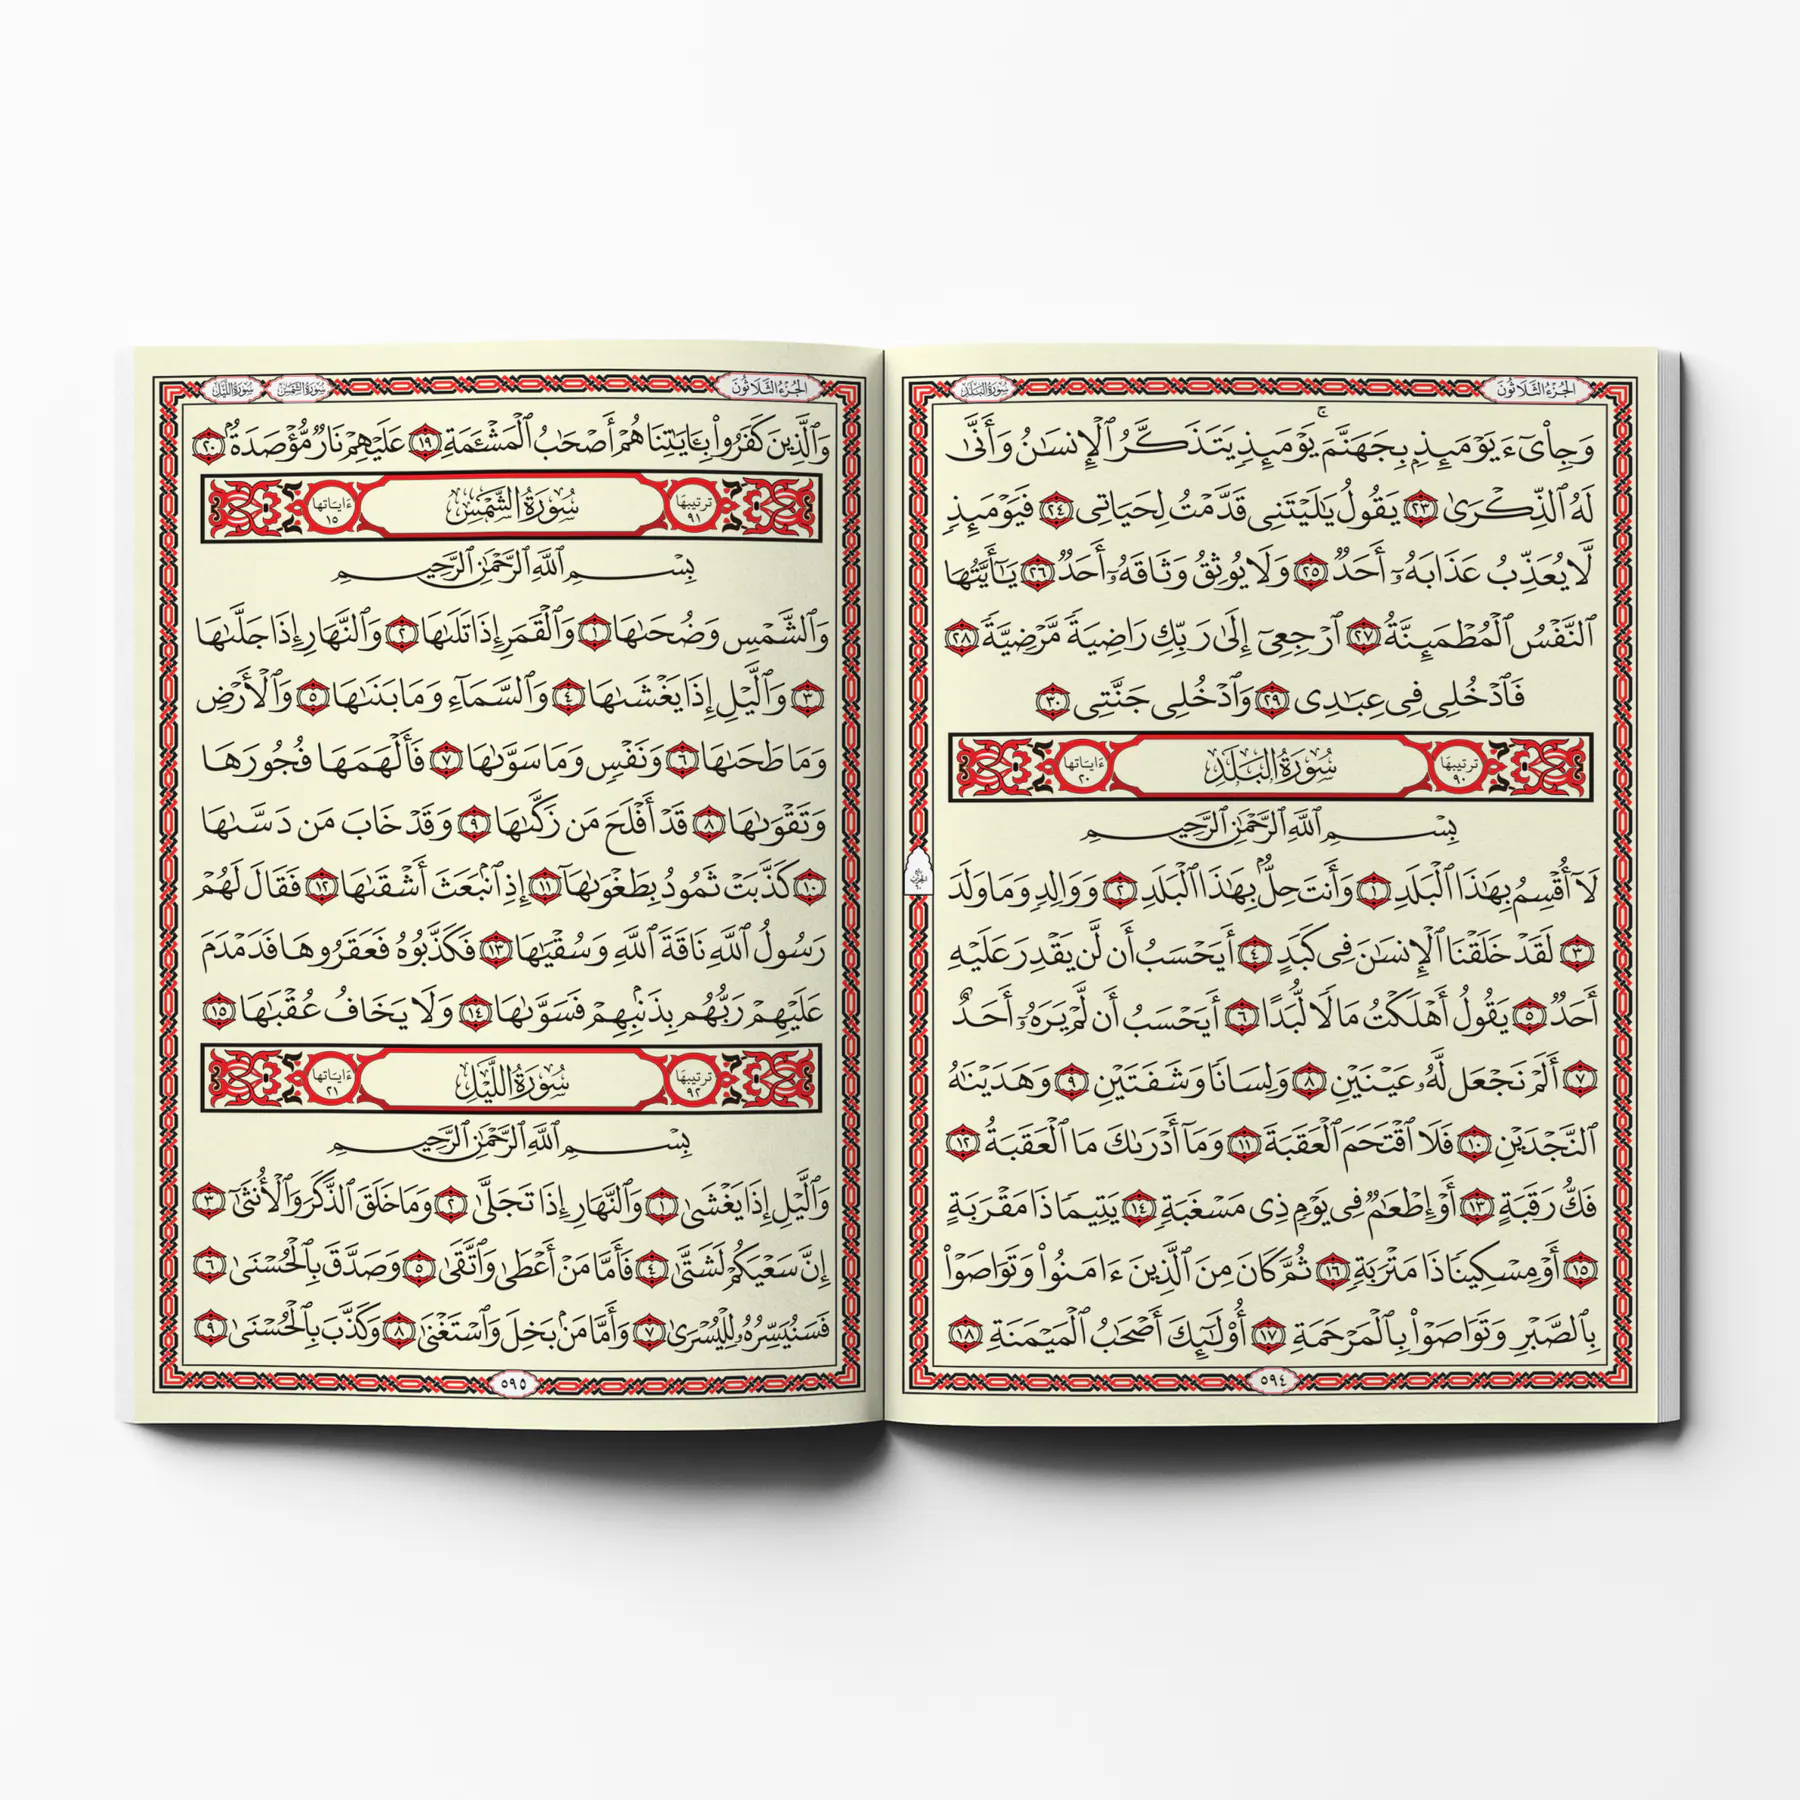 الجزء الثلاثون
سورة البلد
وَجِاْىٓءَ يَوْمَئِذِۭ بِجَهَنَّمَ ۚ يَوْمَئِذٍ يَتَذَكَّرُ ٱلْإِنسَٰنُ وَأَنَّىٰ
لَهُ ٱلذِّكْرَىٰ ٢٣ يَقُولُ يَٰلَيْتَنِى قَدَّمْتُ لِحَيَاتِى ٢٤ فَيَوْمَئِذٍ
لَّا يُعَذِّبُ عَذَابَهُۥٓ أَحَدٌ ٢٥ وَلَا يُوثِقُ وَثَاقَهُۥٓ أَحَدٌ ٢٦ يَٰٓأَيَّتُهَا
ٱلنَّفْسُ ٱلْمُطْمَئِنَّةُ ٢٧ ٱرْجِعِىٓ إِلَىٰ رَبِّكِ رَاضِيَةً مَّرْضِيَّةً ٢٨
فَٱدْخُلِى فِى عِبَٰدِى ٢٩ وَٱدْخُلِى جَنَّتِى ٣٠
ترتيبها ٩٠ سُورَةُ البَلَدِ ءَاياتها ٢٠
بِسْمِ ٱللَّهِ ٱلرَّحْمَٰنِ ٱلرَّحِيمِ
لَآ أُقْسِمُ بِهَٰذَا ٱلْبَلَدِ ١ وَأَنتَ حِلٌّۢ بِهَٰذَا ٱلْبَلَدِ ٢ وَوَالِدٍ وَمَا وَلَدَ
٣ لَقَدْ خَلَقْنَا ٱلْإِنسَٰنَ فِى كَبَدٍ ٤ أَيَحْسَبُ أَن لَّن يَقْدِرَ عَلَيْهِ
أَحَدٌ ٥ يَقُولُ أَهْلَكْتُ مَالًا لُّبَدًا ٦ أَيَحْسَبُ أَن لَّمْ يَرَهُۥٓ أَحَدٌ
٧ أَلَمْ نَجْعَل لَّهُۥ عَيْنَيْنِ ٨ وَلِسَانًا وَشَفَتَيْنِ ٩ وَهَدَيْنَٰهُ
ٱلنَّجْدَيْنِ ١٠ فَلَا ٱقْتَحَمَ ٱلْعَقَبَةَ ١١ وَمَآ أَدْرَىٰكَ مَا ٱلْعَقَبَةُ ١٢
فَكُّ رَقَبَةٍ ١٣ أَوْ إِطْعَٰمٌ فِى يَوْمٍ ذِى مَسْغَبَةٍ ١٤ يَتِيمًا ذَا مَقْرَبَةٍ
١٥ أَوْ مِسْكِينًا ذَا مَتْرَبَةٍ ١٦ ثُمَّ كَانَ مِنَ ٱلَّذِينَ ءَامَنُوا۟ وَتَوَاصَوْا۟
بِٱلصَّبْرِ وَتَوَاصَوْا۟ بِٱلْمَرْحَمَةِ ١٧ أُو۟لَٰٓئِكَ أَصْحَٰبُ ٱلْمَيْمَنَةِ ١٨
٥٩٤
الجزء الثلاثون
سورة الشمس سورة الليل
وَٱلَّذِينَ كَفَرُوا۟ بِـَٔايَٰتِنَا هُمْ أَصْحَٰبُ ٱلْمَشْـَٔمَةِ ١٩ عَلَيْهِمْ نَارٌ مُّؤْصَدَةٌۢ ٢٠
ترتيبها ٩١ سُورَةُ الشَّمْسِ ءَاياتها ١٥
بِسْمِ ٱللَّهِ ٱلرَّحْمَٰنِ ٱلرَّحِيمِ
وَٱلشَّمْسِ وَضُحَىٰهَا ١ وَٱلْقَمَرِ إِذَا تَلَىٰهَا ٢ وَٱلنَّهَارِ إِذَا جَلَّىٰهَا
٣ وَٱلَّيْلِ إِذَا يَغْشَىٰهَا ٤ وَٱلسَّمَآءِ وَمَا بَنَىٰهَا ٥ وَٱلْأَرْضِ
وَمَا طَحَىٰهَا ٦ وَنَفْسٍ وَمَا سَوَّىٰهَا ٧ فَأَلْهَمَهَا فُجُورَهَا
وَتَقْوَىٰهَا ٨ قَدْ أَفْلَحَ مَن زَكَّىٰهَا ٩ وَقَدْ خَابَ مَن دَسَّىٰهَا
١٠ كَذَّبَتْ ثَمُودُ بِطَغْوَىٰهَآ ١١ إِذِ ٱنۢبَعَثَ أَشْقَىٰهَا ١٢ فَقَالَ لَهُمْ
رَسُولُ ٱللَّهِ نَاقَةَ ٱللَّهِ وَسُقْيَٰهَا ١٣ فَكَذَّبُوهُ فَعَقَرُوهَا فَدَمْدَمَ
عَلَيْهِمْ رَبُّهُم بِذَنۢبِهِمْ فَسَوَّىٰهَا ١٤ وَلَا يَخَافُ عُقْبَٰهَا ١٥
ترتيبها ٩٢ سُورَةُ اللَّيْلِ ءَاياتها ٢١
بِسْمِ ٱللَّهِ ٱلرَّحْمَٰنِ ٱلرَّحِيمِ
وَٱلَّيْلِ إِذَا يَغْشَىٰ ١ وَٱلنَّهَارِ إِذَا تَجَلَّىٰ ٢ وَمَا خَلَقَ ٱلذَّكَرَ وَٱلْأُنثَىٰٓ ٣
إِنَّ سَعْيَكُمْ لَشَتَّىٰ ٤ فَأَمَّا مَنْ أَعْطَىٰ وَٱتَّقَىٰ ٥ وَصَدَّقَ بِٱلْحُسْنَىٰ ٦
فَسَنُيَسِّرُهُۥ لِلْيُسْرَىٰ ٧ وَأَمَّا مَنۢ بَخِلَ وَٱسْتَغْنَىٰ ٨ وَكَذَّبَ بِٱلْحُسْنَىٰ ٩
٥٩٥